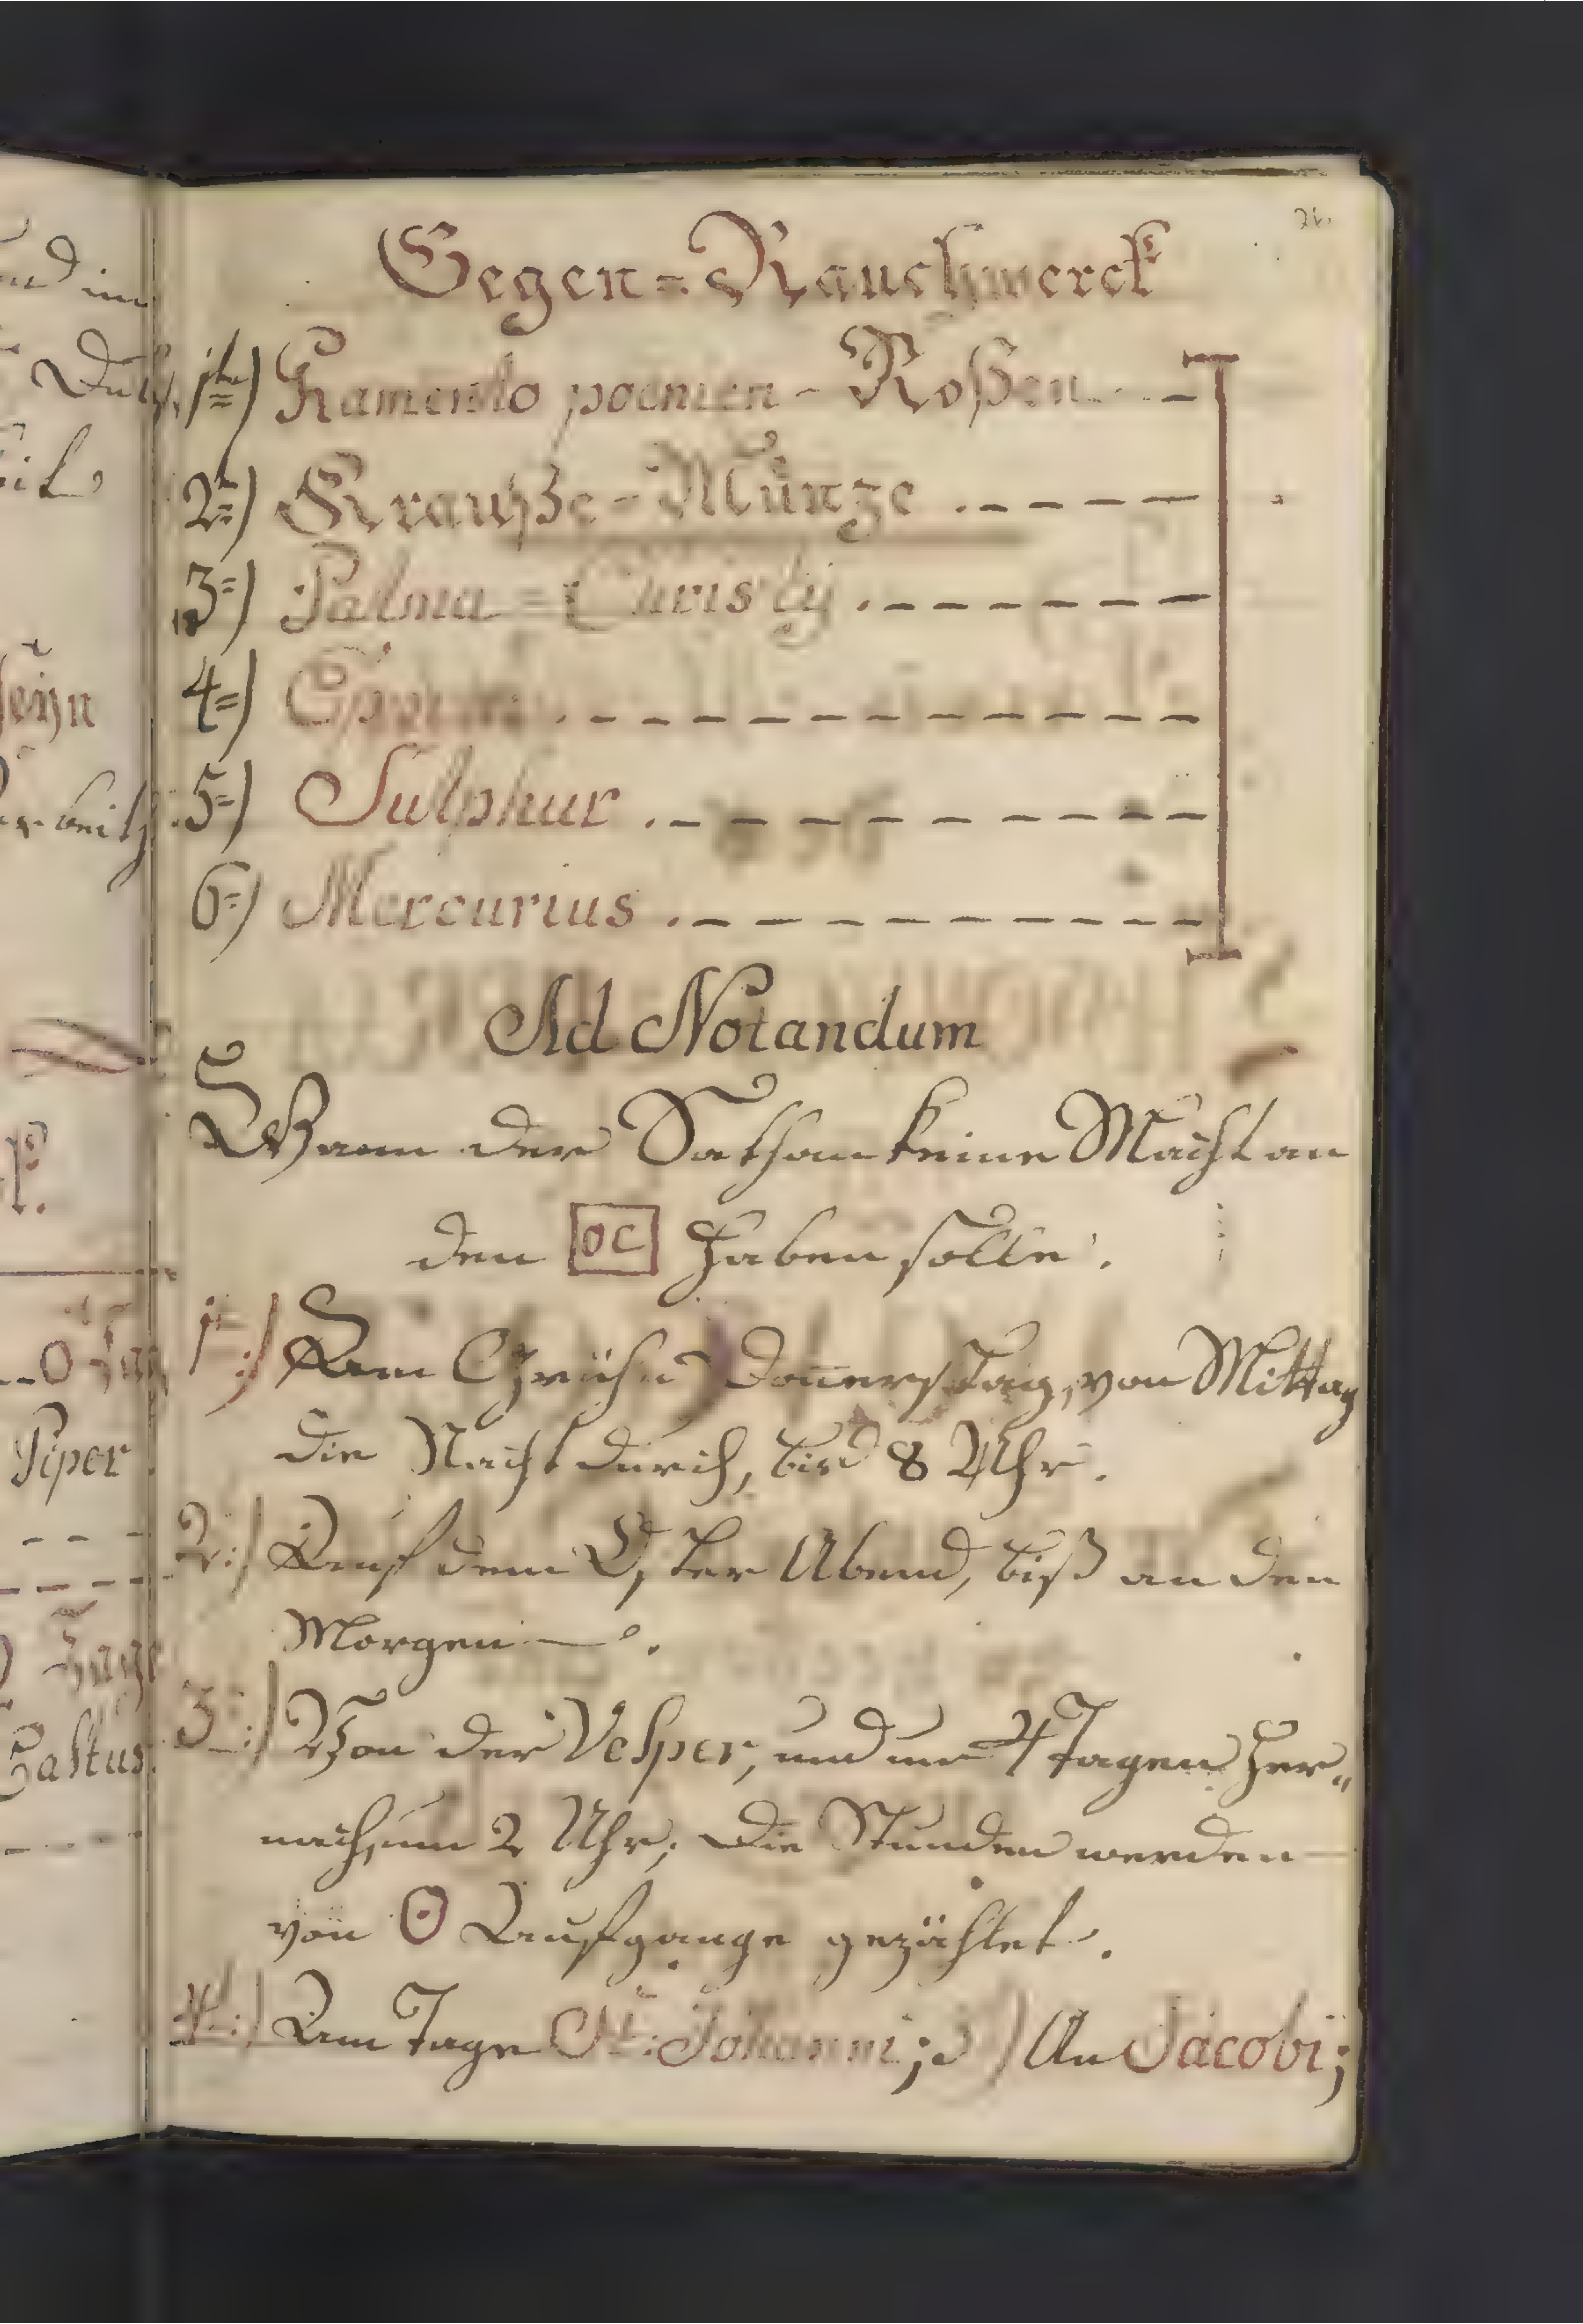 26.
Gegen=Rauchwerck
1te) poenien - Roßen
2te) Krauße=Münze
3=) Palma=Christij
4=)
5=) Sulphur
6=) Mercurius
Ad Notandum
Wann der Sathan keine Macht an
den OC haben solle.
1=:) Am Grühn Donnerstag, von Mittag
die Nacht durch, biß 8 Uhr.
2.:) Auf dem Oster Abend, biß an den
Morgen.
3=:) Von der Vesper, und um 4 Tagen her„
nach, um 2 Uhr; Die Stunden werden
von ☉ Aufgange gezählet.
4.:) Am Tage St: Johanni; 5) An Jacobi;
nd im
seÿn
Piper